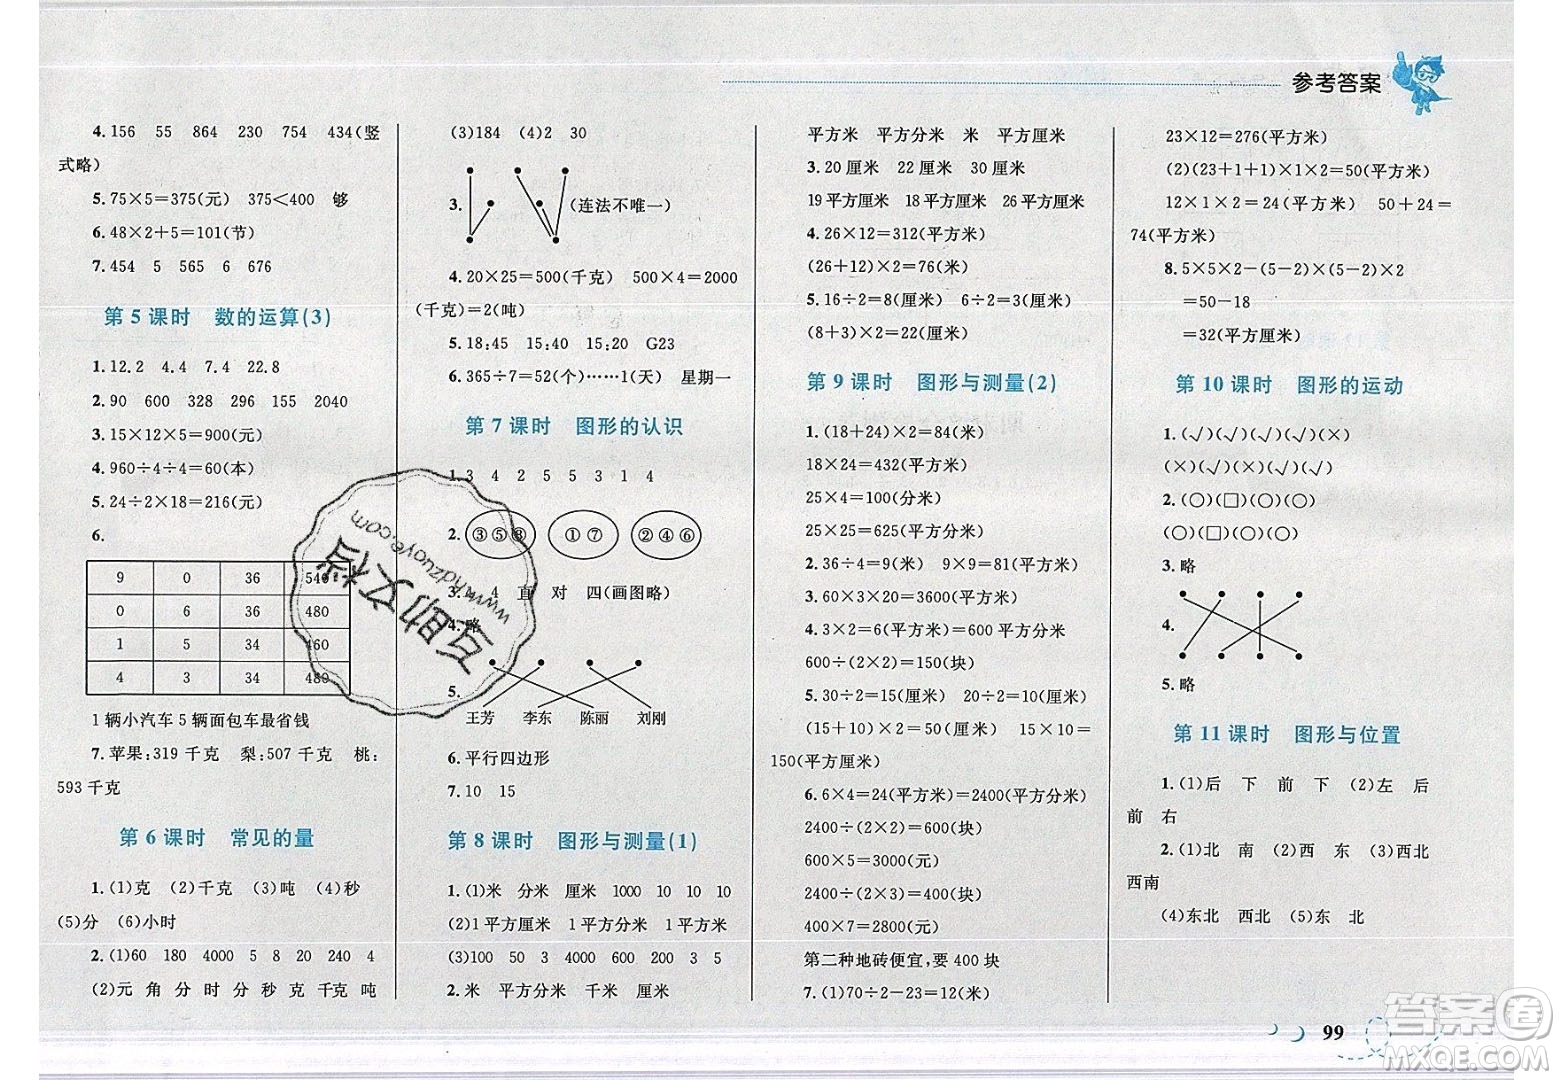 参考答案
4. 156 55 864 230 754 434(竖
式略)
5. 75×5=375(元) 375<400 够
6. 48×2+5=101(节)
7. 454 5 565 6 676
第5课时 数的运算(3)
1. 12.2 4.4 7.4 22.8
2. 90 600 328 296 155 2040
3. 15×12×5=900(元)
4. 960÷4÷4=60(本)
5. 24÷2×18=216(元)
6.
9 0 36 540
0 6 36 480
1 5 34 460
4 3 34 480
1辆小汽车5辆面包车最省钱
7. 苹果:319千克 梨:507千克 桃:
593千克
第6课时 常见的量
1. (1)克 (2)千克 (3)吨 (4)秒
(5)分 (6)小时
2. (1)60 180 4000 5 8 20 240 4
(2)元 角 分 时 分 秒 克 千克 吨
(3)184 (4)2 30
3. (连法不唯一)
4. 20×25=500(千克) 500×4=2000
(千克)=2(吨)
5. 18:45 15:40 15:20 G23
6. 365÷7=52(个)……1(天) 星期一
第7课时 图形的认识
1. 3 4 2 5 5 3 1 4
2. ③⑤⑧ ①⑦ ②④⑥
3. 4 4 直 对 四(画图略)
4. 略
5.
王芳 李东 陈丽 刘刚
6. 平行四边形
7. 10 15
第8课时 图形与测量(1)
1. (1)米 分米 厘米 1000 10 10 10
(2)1平方厘米 1平方分米 1平方米
(3)100 50 3 4000 600 5
2. 米 平方分米 千米 厘米
平方米 平方分米 米 平方厘米
3. 20厘米 22厘米 30厘米
19平方厘米 18平方厘米 26平方厘米
4. 26×12=312(平方米)
(26+12)×2=76(米)
5. 16÷2=8(厘米) 6÷2=3(厘米)
(8+3)×2=22(厘米)
第9课时 图形与测量(2)
1. (18+24)×2=84(米)
18×24=432(平方米)
25×4=100(分米)
25×25=625(平方分米)
2. 36÷4=9(米) 9×9=81(平方米)
3. 60×3×20=3600(平方米)
4. 3×2=6(平方米)=600(平方分米)
600÷(2×2)=150(块)
5. 30÷2=15(厘米) 20÷2=10(厘米)
(15+10)×2=50(厘米) 15×10=
150(平方厘米)
6. 6×4=24(平方米)=2400(平方分米)
2400÷(2×2)=600(块)
600×5=3000(元)
2400÷(2×3)=400(块)
400×7=2800(元)
第二种地砖便宜,要400块
7. (1)70÷2-23=12(米)
23×12=276(平方米)
(2)(23+1+1)×1×2=50(平方米)
12×1×2=24(平方米) 50+24=
74(平方米)
8. 5×5×2-(5-2)×(5-2)×2
=50-18
=32(平方厘米)
第10课时 图形的运动
1. (√)(√)(×)(√)
(×)(√)(√)(√)
2. (○)(□)(○)(○)
(○)(□)(○)(○)
3. 略
4.
5. 略
第11课时 图形与位置
1. (1)后 下 前 下 (2)左 后
前 右
2. (1)北 南 (2)西 东 (3)西北
西南
(4)东北 西北 (5)东 北
99
互助文档
答案圈
MXQE.COM